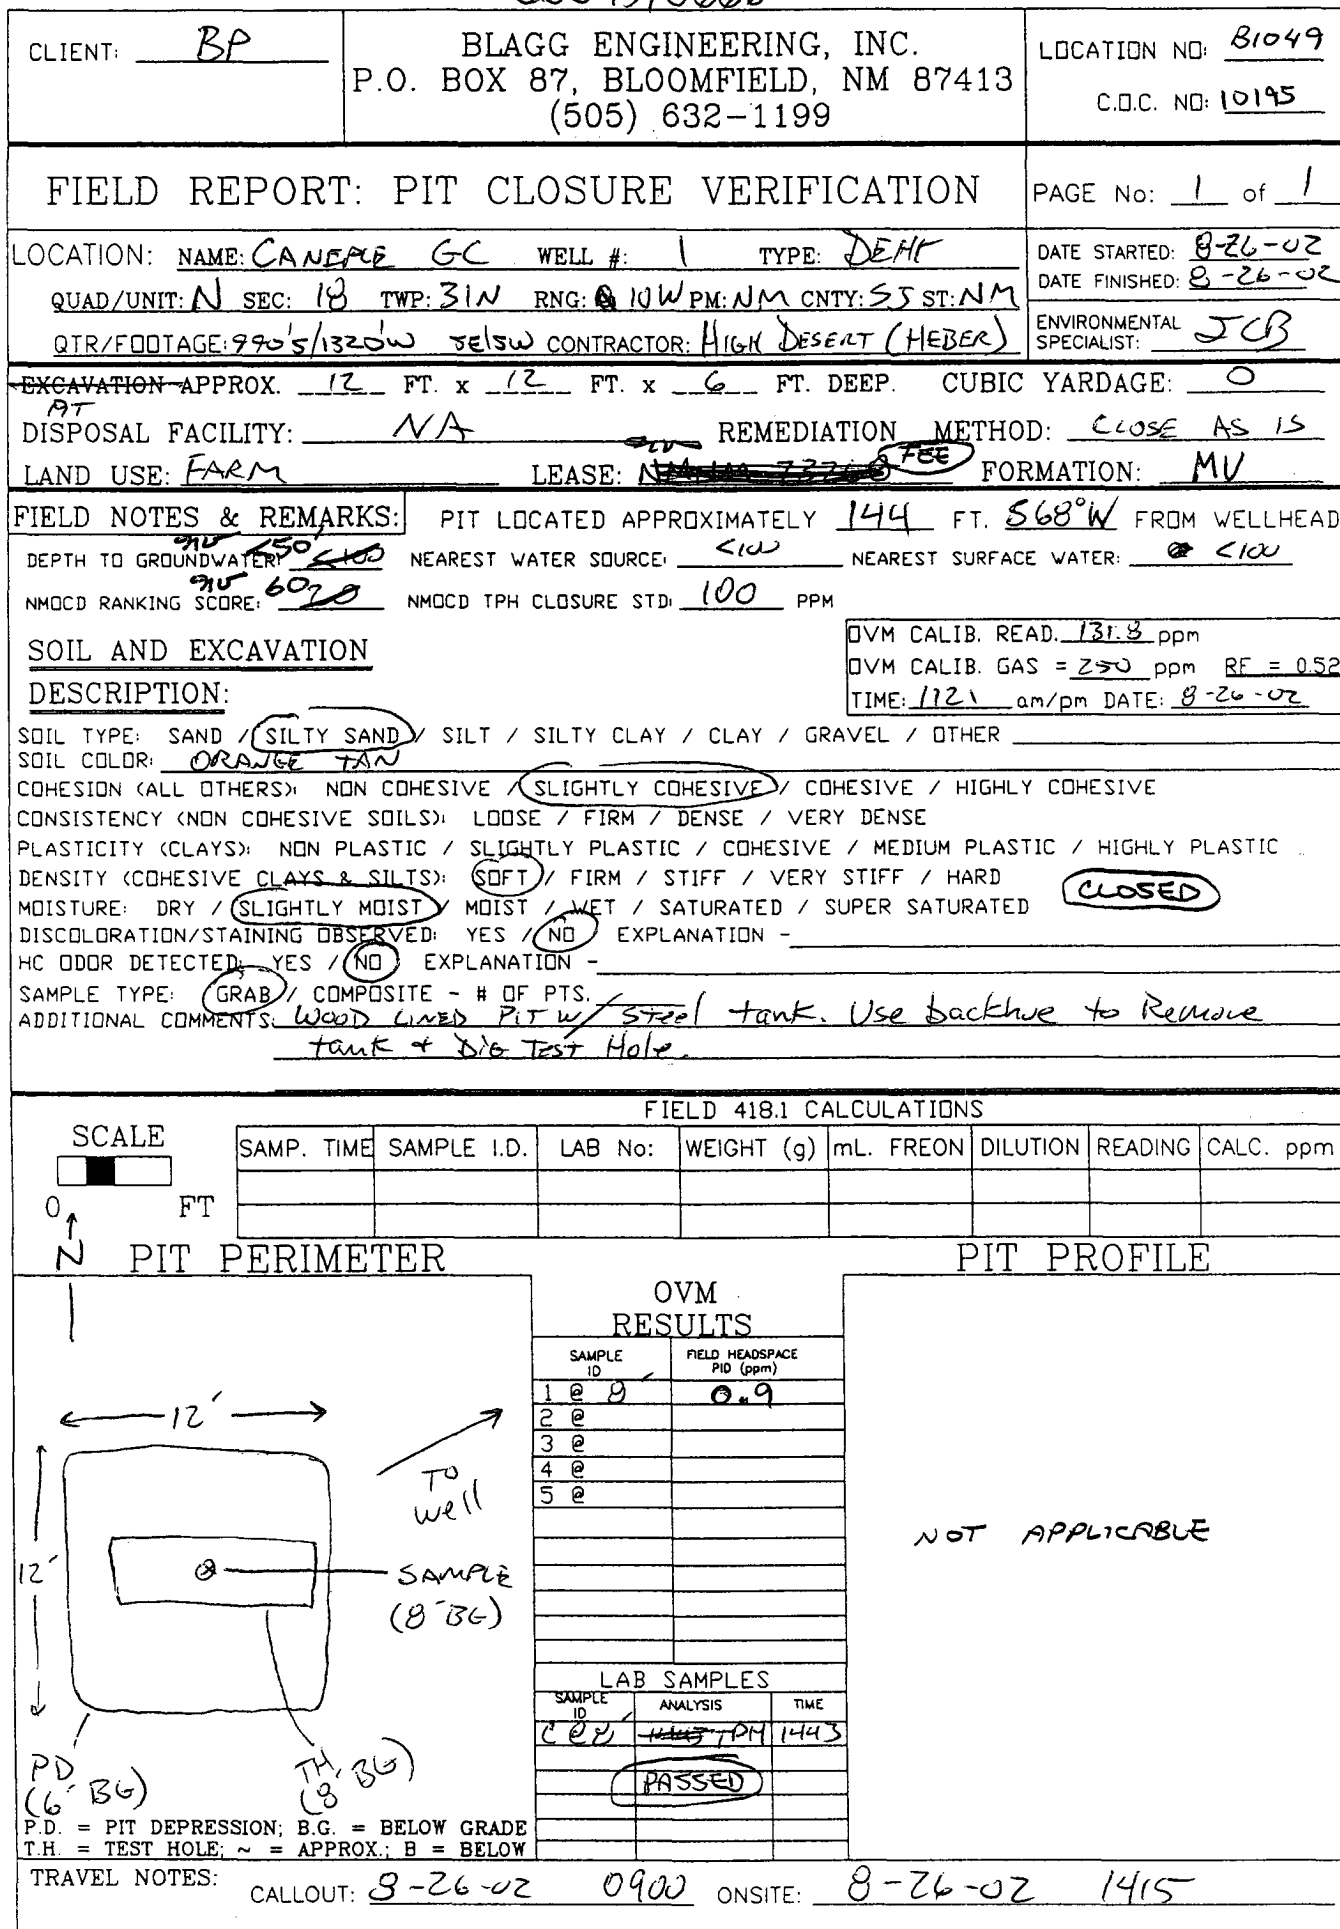 CLIENT: BP
BLAGG ENGINEERING, INC.
P.O. BOX 87, BLOOMFIELD, NM 87413
(505) 632-1199
LOCATION NO: B1049
C.O.C. NO: 10195
FIELD REPORT: PIT CLOSURE VERIFICATION
PAGE No: 1 of 1
LOCATION: NAME: CANEPLE GC WELL #: 1 TYPE: DEHY
QUAD/UNIT: N SEC: 18 TWP: 31N RNG: 10W PM: NM CNTY: SJ ST: NM
QTR/FOOTAGE: 990'S/1320'W SE/SW CONTRACTOR: HIGH DESERT (HEBER)
DATE STARTED: 8-26-02
DATE FINISHED: 8-26-02
ENVIRONMENTAL
SPECIALIST: JCB
EXCAVATION APPROX. 12 FT. x 12 FT. x 6 FT. DEEP. CUBIC YARDAGE: 0
AT
DISPOSAL FACILITY: NA REMEDIATION METHOD: CLOSE AS IS
LAND USE: FARM LEASE: FEE FORMATION: MV
FIELD NOTES & REMARKS: PIT LOCATED APPROXIMATELY 144 FT. S68°W FROM WELLHEAD
DEPTH TO GROUNDWATER: <50 <100 NEAREST WATER SOURCE: <100 NEAREST SURFACE WATER: <100
NMOCD RANKING SCORE: 60 NMOCD TPH CLOSURE STD: 100 PPM
SOIL AND EXCAVATION
DESCRIPTION:
OVM CALIB. READ. 131.8 ppm
OVM CALIB. GAS = 250 ppm RF = 0.52
TIME: 1121 am/pm DATE: 8-26-02
SOIL TYPE: SAND / SILTY SAND / SILT / SILTY CLAY / CLAY / GRAVEL / OTHER
SOIL COLOR: ORANGE TAN
COHESION (ALL OTHERS): NON COHESIVE / SLIGHTLY COHESIVE / COHESIVE / HIGHLY COHESIVE
CONSISTENCY (NON COHESIVE SOILS): LOOSE / FIRM / DENSE / VERY DENSE
PLASTICITY (CLAYS): NON PLASTIC / SLIGHTLY PLASTIC / COHESIVE / MEDIUM PLASTIC / HIGHLY PLASTIC
DENSITY (COHESIVE CLAYS & SILTS): SOFT / FIRM / STIFF / VERY STIFF / HARD
CLOSED
MOISTURE: DRY / SLIGHTLY MOIST / MOIST / WET / SATURATED / SUPER SATURATED
DISCOLORATION/STAINING OBSERVED: YES / NO EXPLANATION -
HC ODOR DETECTED: YES / NO EXPLANATION -
SAMPLE TYPE: GRAB / COMPOSITE - # OF PTS.
ADDITIONAL COMMENTS: WOOD LINED PIT W/ Steel tank. Use backhoe to Remove
tank & DIG TEST Hole.
FIELD 418.1 CALCULATIONS
SCALE
0 FT
SAMP. TIME SAMPLE I.D. LAB No: WEIGHT (g) mL. FREON DILUTION READING CALC. ppm
N PIT PERIMETER
PIT PROFILE
OVM
RESULTS
SAMPLE ID FIELD HEADSPACE PID (ppm)
1 @ 8' 0.9
2 @
3 @
4 @
5 @
12'
TO
well
12'
SAMPLE
(8' BG)
NOT APPLICABLE
PD
(6' BG)
TH
(8' BG)
LAB SAMPLES
SAMPLE ID ANALYSIS TIME
C@8' TPH 1443
PASSED
P.D. = PIT DEPRESSION; B.G. = BELOW GRADE
T.H. = TEST HOLE; ~ = APPROX.; B = BELOW
TRAVEL NOTES: CALLOUT: 8-26-02 0900 ONSITE: 8-26-02 1415